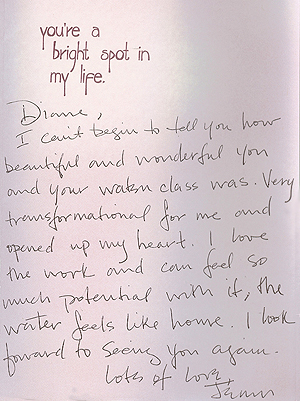 you're a
bright spot in
my life.
Diane,
I can't begin to tell you how
beautiful and wonderful you
and your watsu class was. Very
transformational for me and
opened up my heart. I love
the work and can feel so
much potential with it, the
water feels like home. I look
forward to seeing you again.
Lots of love,